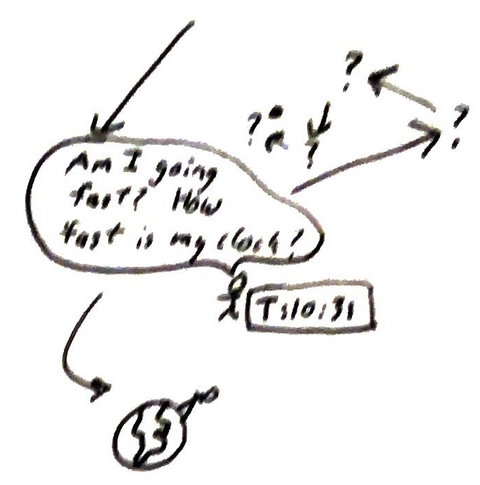 ?
?
?
?
Am I going
fast? How
fast is my clock?
T:10:31